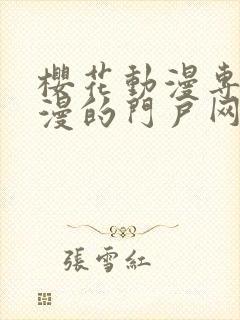 櫻花動漫專
漫的門戶网
張雪紅